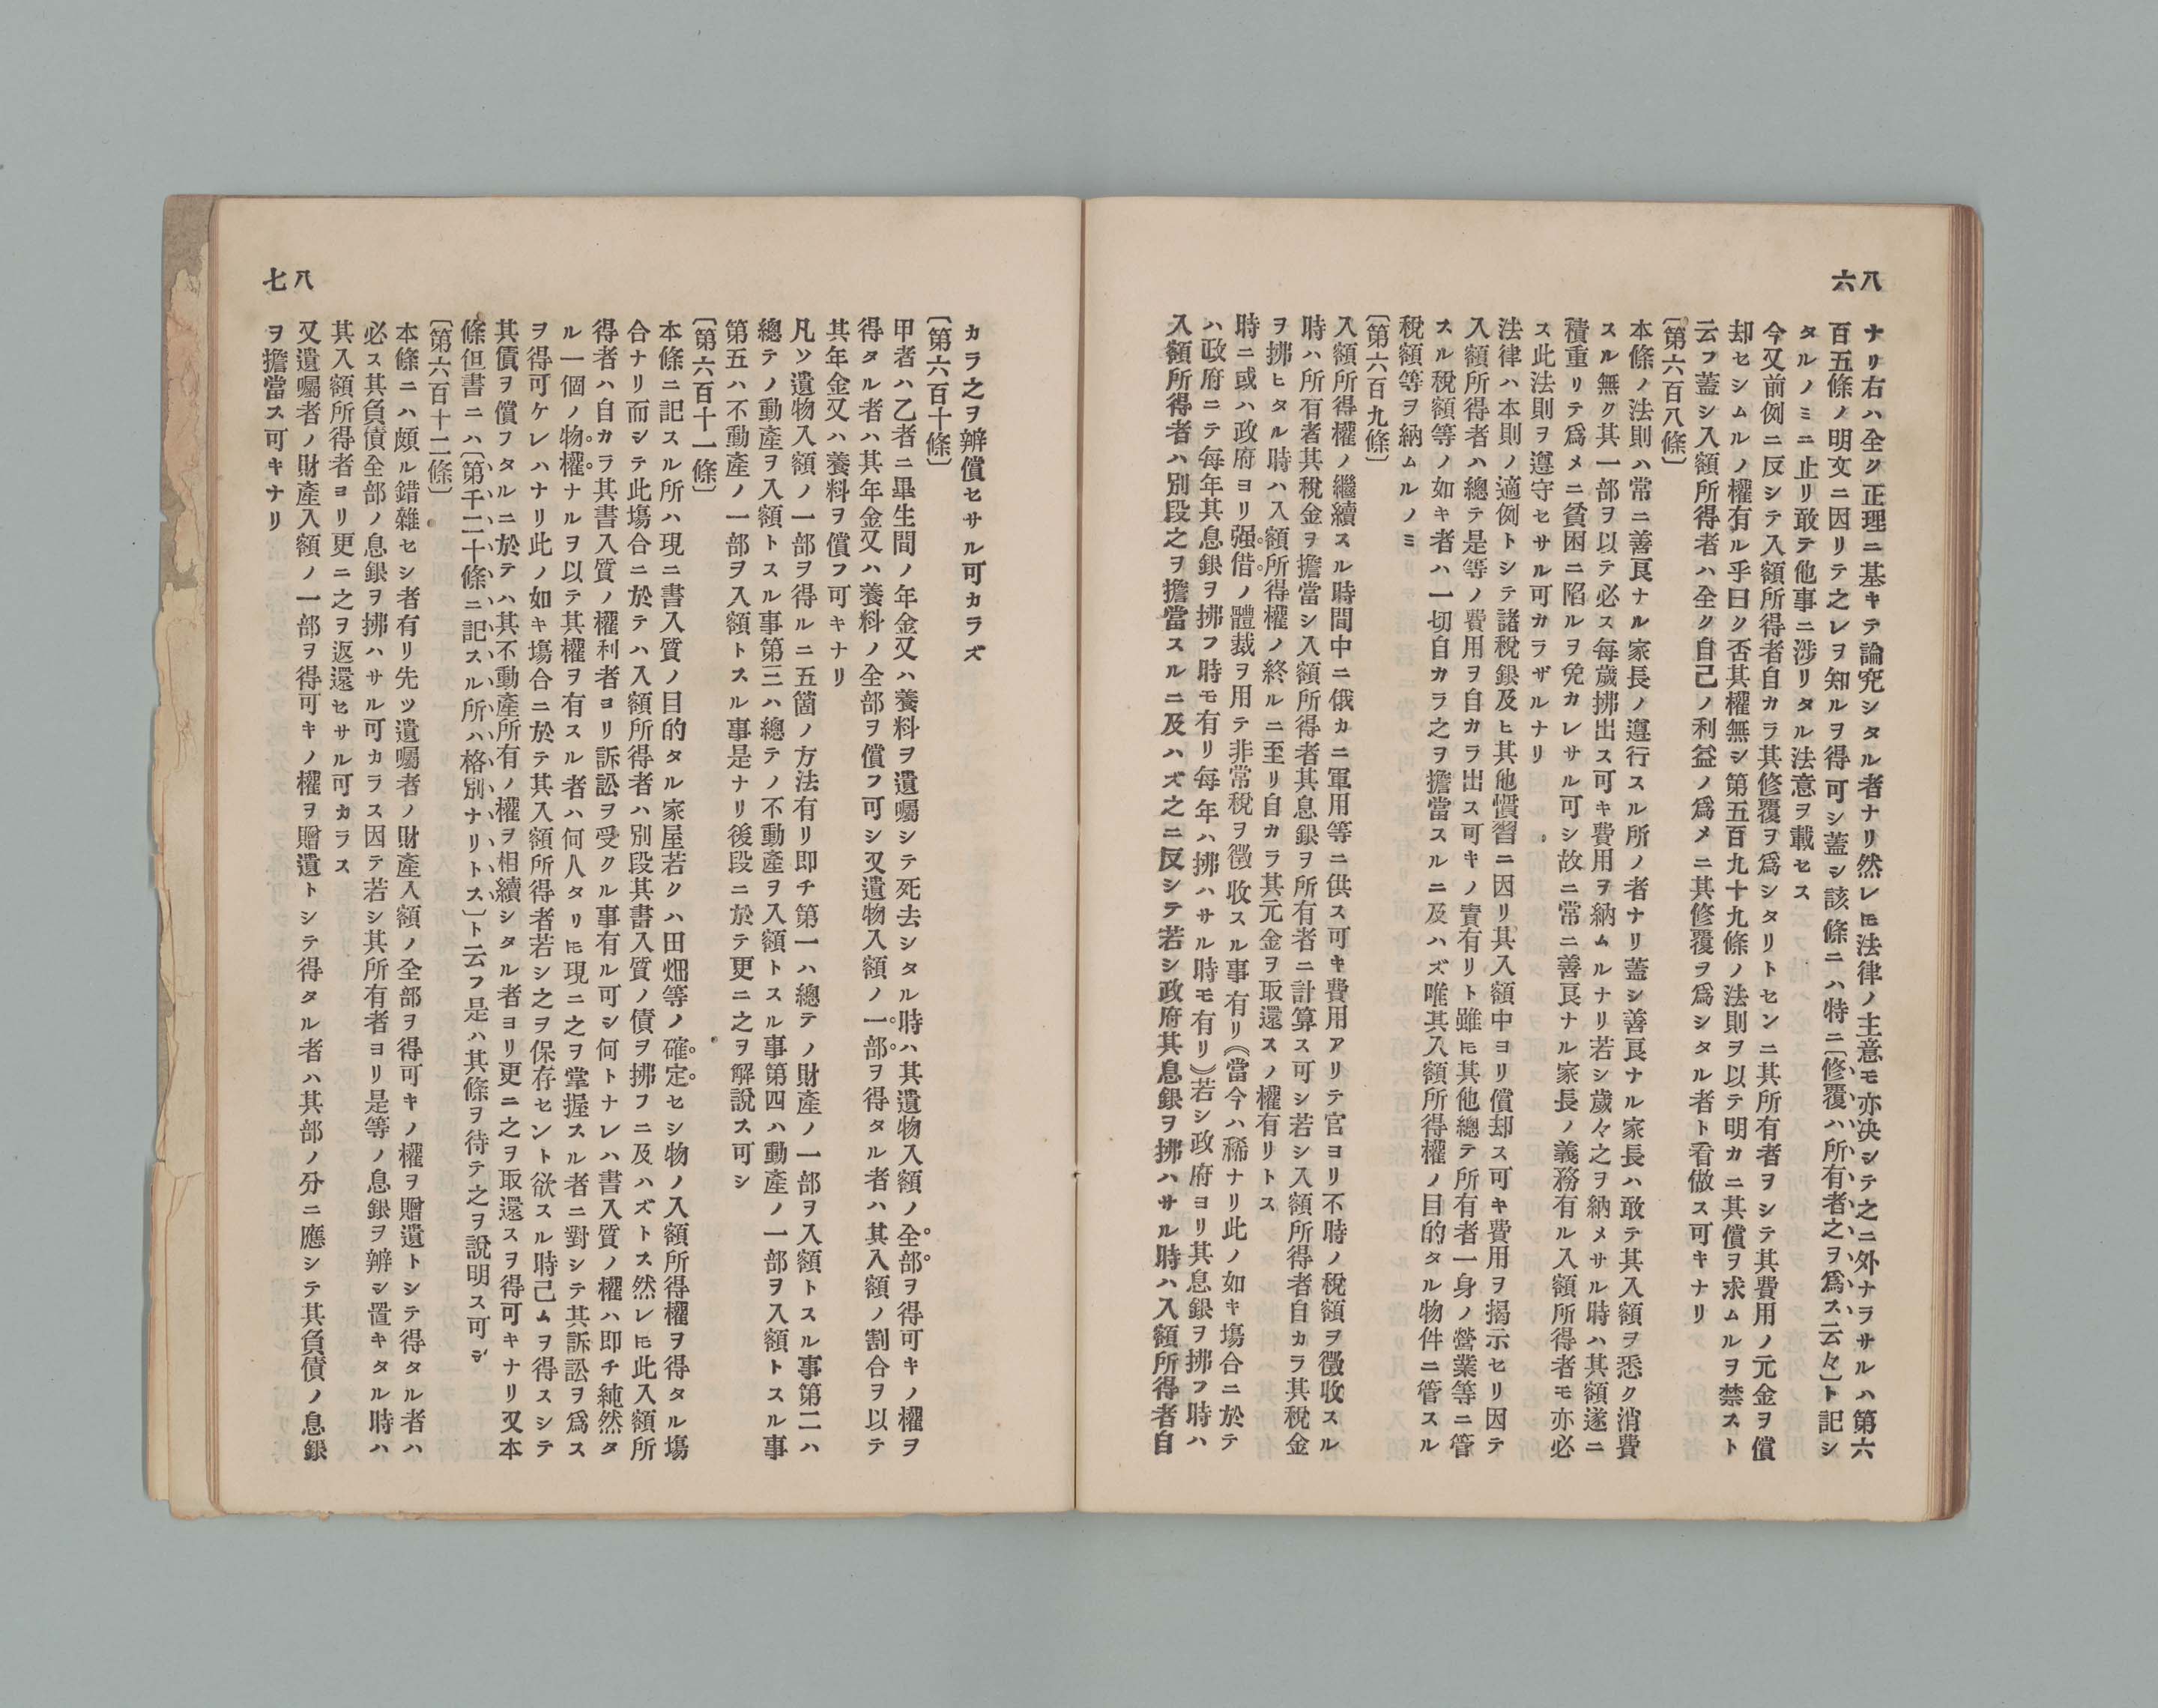 八六
ナリ右ハ全ク正理ニ基キテ論究シタル者ナリ然レ𪜈法律ノ主意モ亦決シテ之ニ外ナラサルハ第六
百五條ノ明文ニ因リテ之レヲ知ルヲ得可シ蓋シ該條ニハ特ニ〔修覆ハ所有者之ヲ爲ス云々〕ト記シ
タルノミニ止リ敢テ他事ニ渉リタル法意ヲ載セス
今又前例ニ反シテ入額所得者自カラ其修覆ヲ爲シタリトセンニ其所有者ヲシテ其費用ノ元金ヲ償
却セシムルノ權有ル乎曰ク否其權無シ第五百九十九條ノ法則ヲ以テ明カニ其償ヲ求ムルヲ禁スト
云フ蓋シ入額所得者ハ全ク自己ノ利益ノ爲メニ其修覆ヲ爲シタル者ト看做ス可キナリ
〔第六百八條〕
本條ノ法則ハ常ニ善良ナル家長ノ遵行スル所ノ者ナリ蓋シ善良ナル家長ハ敢テ其入額ヲ悉ク消費
スル無ク其一部ヲ以テ必ス每歲拂出ス可キ費用ヲ納ムルナリ若シ歲々之ヲ納メサル時ハ其額遂ニ
積重リテ爲メニ貧困ニ陷ルヲ免カレサル可シ故ニ常ニ善良ナル家長ノ義務有ル入額所得者モ亦必
ス此法則ヲ遵守セサル可カラザルナリ
法律ハ本則ノ適例トシテ諸稅銀及ヒ其他慣習ニ因リ其入額中ヨリ償却ス可キ費用ヲ揭示セリ因テ
入額所得者ハ總テ是等ノ費用ヲ自カラ出ス可キノ責有リト雖𪜈其他總テ所有者一身ノ營業等ニ管
スル稅額等ノ如キ者ハ一切自カラ之ヲ擔當スルニ及ハズ唯其入額所得權ノ目的タル物件ニ管スル
稅額等ヲ納ムルノミ
〔第六百九條〕
入額所得權ノ繼續スル時間中ニ俄カニ軍用等ニ供ス可キ費用アリテ官ヨリ不時ノ稅額ヲ徵收スル
時ハ所有者其稅金ヲ擔當シ入額所得者其息銀ヲ所有者ニ計算ス可シ若シ入額所得者自カラ其稅金
ヲ拂ヒタル時ハ入額所得權ノ終ルニ至リ自カラ其元金ヲ取還スノ權有リトス
時ニ或ハ政府ヨリ强借ノ體裁ヲ用テ非常稅ヲ徵收スル事有リ《當今ハ稀ナリ此ノ如キ塲合ニ於テ
ハ政府ニテ每年其息銀ヲ拂フ時モ有リ每年ハ拂ハサル時モ有リ》若シ政府ヨリ其息銀ヲ拂フ時ハ
入額所得者ハ別段之ヲ擔當スルニ及ハズ之ニ反シテ若シ政府其息銀ヲ拂ハサル時ハ入額所得者自
八七
カラ之ヲ辨償セサル可カラズ
〔第六百十條〕
甲者ハ乙者ニ畢生間ノ年金又ハ養料ヲ遺囑シテ死去シタル時ハ其遺物入額ノ全部ヲ得可キノ權ヲ
得タル者ハ其年金又ハ養料ノ全部ヲ償フ可シ又遺物入額ノ一部ヲ得タル者ハ其入額ノ割合ヲ以テ
其年金又ハ養料ヲ償フ可キナリ
凡ソ遺物入額ノ一部ヲ得ルニ五箇ノ方法有リ即チ第一ハ總テノ財產ノ一部ヲ入額トスル事第二ハ
總テノ動產ヲ入額トスル事第三ハ總テノ不動產ヲ入額トスル事第四ハ動產ノ一部ヲ入額トスル事
第五ハ不動產ノ一部ヲ入額トスル事是ナリ後段ニ於テ更ニ之ヲ解說ス可シ
〔第六百十一條〕
本條ニ記スル所ハ現ニ書入質ノ目的タル家屋若クハ田畑等ノ確定セシ物ノ入額所得權ヲ得タル塲
合ナリ而シテ此塲合ニ於テハ入額所得者ハ別段其書入質ノ債ヲ拂フニ及ハズトス然レ𪜈此入額所
得者ハ自カラ其書入質ノ權利者ヨリ訴訟ヲ受クル事有ル可シ何トナレハ書入質ノ權ハ即チ純然タ
ル一個ノ物權ナルヲ以テ其權ヲ有スル者ハ何人タリ𪜈現ニ之ヲ掌握スル者ニ對シテ其訴訟ヲ爲ス
ヲ得可ケレハナリ此ノ如キ塲合ニ於テ其入額所得者若シ之ヲ保存セント欲スル時已ムヲ得スシテ
其債ヲ償フタルニ於テハ其不動產所有ノ權ヲ相續シタル者ヨリ更ニ之ヲ取還スヲ得可キナリ又本
條但書ニハ〔第千二十條ニ記スル所ハ格別ナリトス〕ト云フ是ハ其條ヲ待テ之ヲ說明ス可シ
〔第六百十二條〕
本條ニハ頗ル錯雜セシ者有リ先ツ遺囑者ノ財產入額ノ全部ヲ得可キノ權ヲ贈遺トシテ得タル者ハ
必ス其負債全部ノ息銀ヲ拂ハサル可カラス因テ若シ其所有者ヨリ是等ノ息銀ヲ辨シ置キタル時ハ
其入額所得者ヨリ更ニ之ヲ返還セサル可カラス
又遺囑者ノ財產入額ノ一部ヲ得可キノ權ヲ贈遺トシテ得タル者ハ其部ノ分ニ應シテ其負債ノ息銀
ヲ擔當ス可キナリ